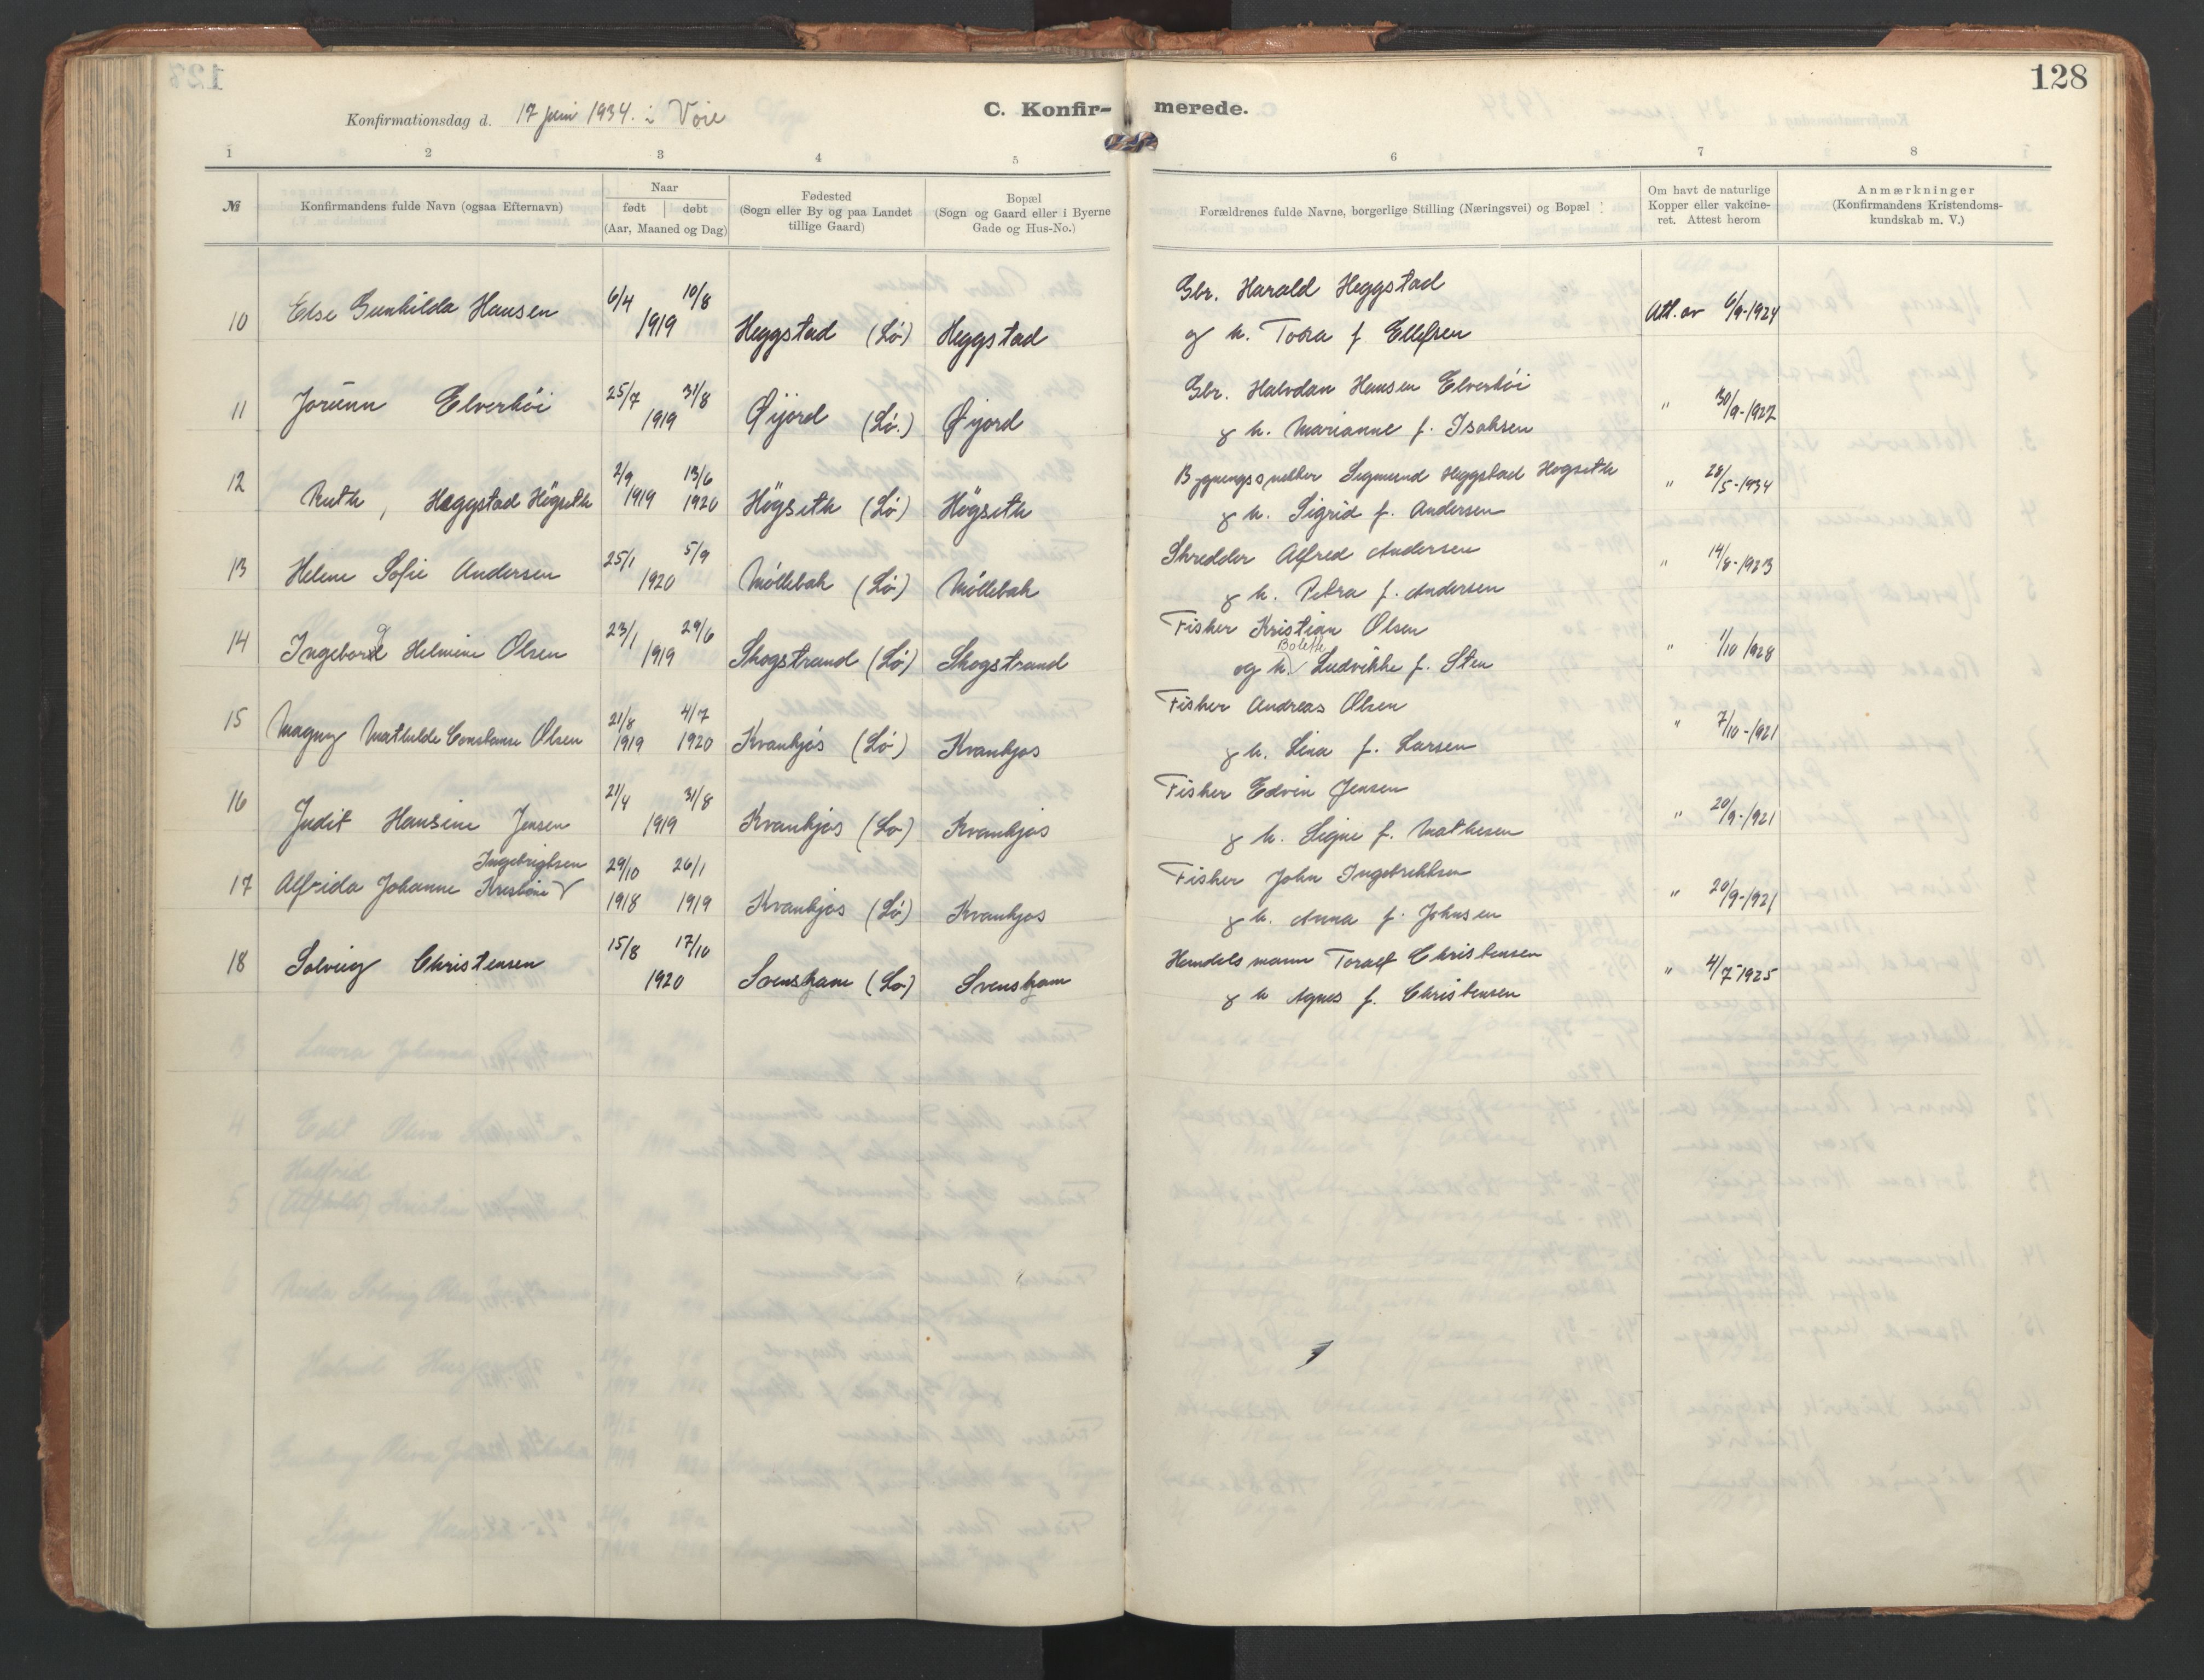 128
Konfirmationsdag d. 17 juni 1934. i Voie
C. Konfir- merede.
1 2 3 4 5 6 7 8
№ Konfirmandens fulde Navn (ogsaa Efternavn) Naar født døbt (Aar, Maaned og Dag) Fødested (Sogn eller By og paa Landet tillige Gaard) Bopæl (Sogn og Gaard eller i Byerne Gade og Hus-No.) Forældrenes fulde Navne, borgerlige Stilling (Næringsvei) og Bopæl Om havt de naturlige Kopper eller vakcineret. Attest herom Anmærkninger (Konfirmandens Kristendomskundskab m. V.)
10 Else Gunhilda Hansen 6/4 10/8 1919 Heggstad (Lö) Heggstad Gbr. Harald Heggstad
og h. Tora f Ellefsen Att. av 6/9-1924
11 Jorunn Elverhöi 25/7 31/8 1919 Øijord (Lö.) Øijord Gbr. Halvdan Hansen Elverhöi
g h. Marianne f. Isaksen " 30/9-1927
12 Ruth, Heggstad Högseth 2/9 1919 13/6 1920 Högseth (Lö) Högseth Bygningssnekker Sigmund Heggstad Hogseth
g h. Sigrid f. Andersen " 28/5-1934
13 Helene Sofie Andersen 25/1 5/9 1920 Möllebak (Lö) Möllebak Skredder Alfred Andersen
g h. Petra f. Andersen " 14/8-1923
14 Ingeborg Helmine Olsen 23/1 29/6 1919 Skogstrand (Lö) Skogstrand Fisker Kristian Olsen
og h. Bolette Ludvikke f. Sten " 1/10 1928
15 Magny Mathilde Constanse Olsen 21/8 1919 4/7 1920 Kvankjös (Lö) Kvankjos Fisker Andreas Olsen
g h. Lina f. Larsen " 7/10-1921
16 Judit Hansine Jensen 21/4 31/8 1919 Kvankjos (Lo) Kvankjos Fisker Edvin Jensen
g h. Signe f. Mathesen " 20/9-1921
17 Alfrida Johanne Kristine Ingebrigtsen 29/10 1918 26/1 1919 Kvankjos (Lö) Kvankjos Fisker John Ingebrektsen
g h. Anna f. Johnsen " 20/9-1921
18 Solveig Christensen 15/8 17/10 1920 Svensham (Lo) Svensham Handelsmann Toralf Christensen
g h Agnes f. Christensen " 4/7-1925